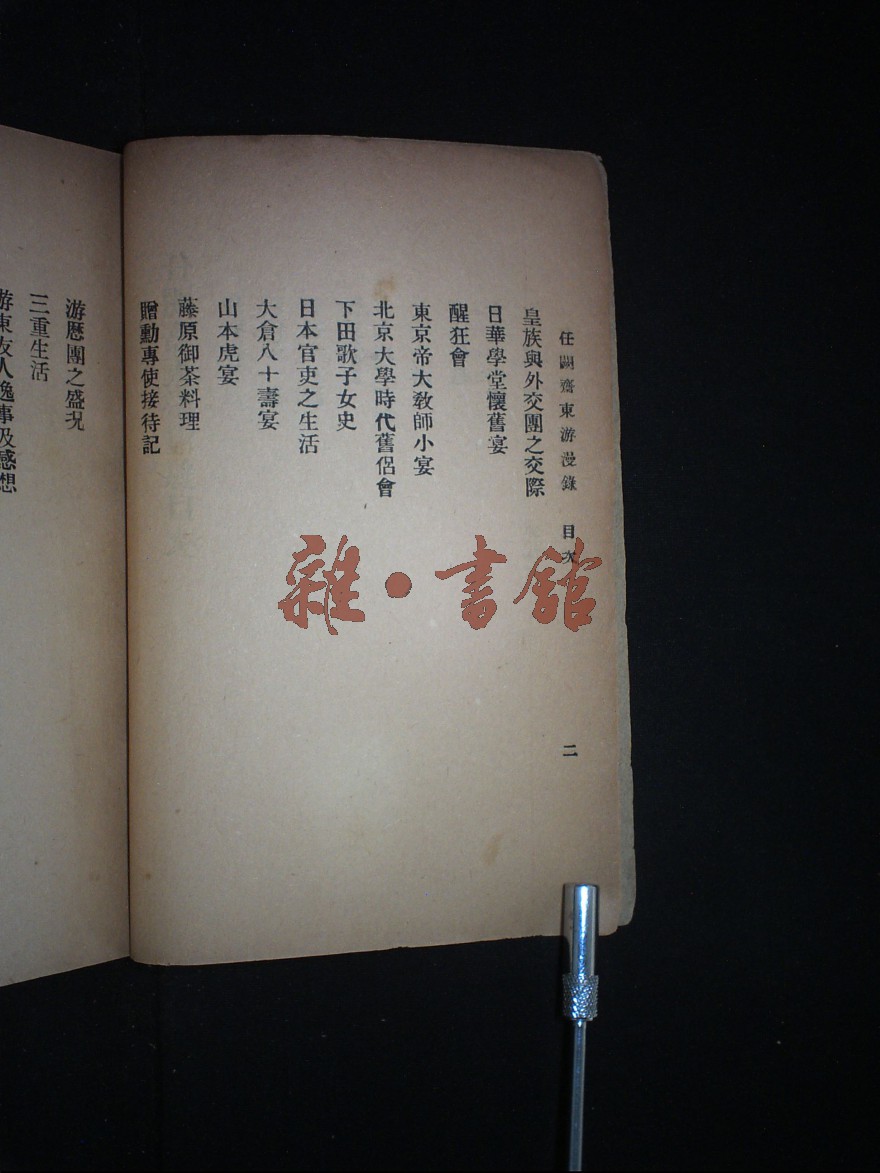 任闕齋東游漫錄 目次 二
皇族與外交團之交際
日華學堂懷舊宴
醒狂會
東京帝大教師小宴
北京大學時代舊侶會
下田歌子女史
日本官吏之生活
大倉八十壽宴
山本虎宴
藤原御茶料理
贈勳專使接待記
游歷團之盛況
三重生活
游東友人逸事及感想
雜·書館